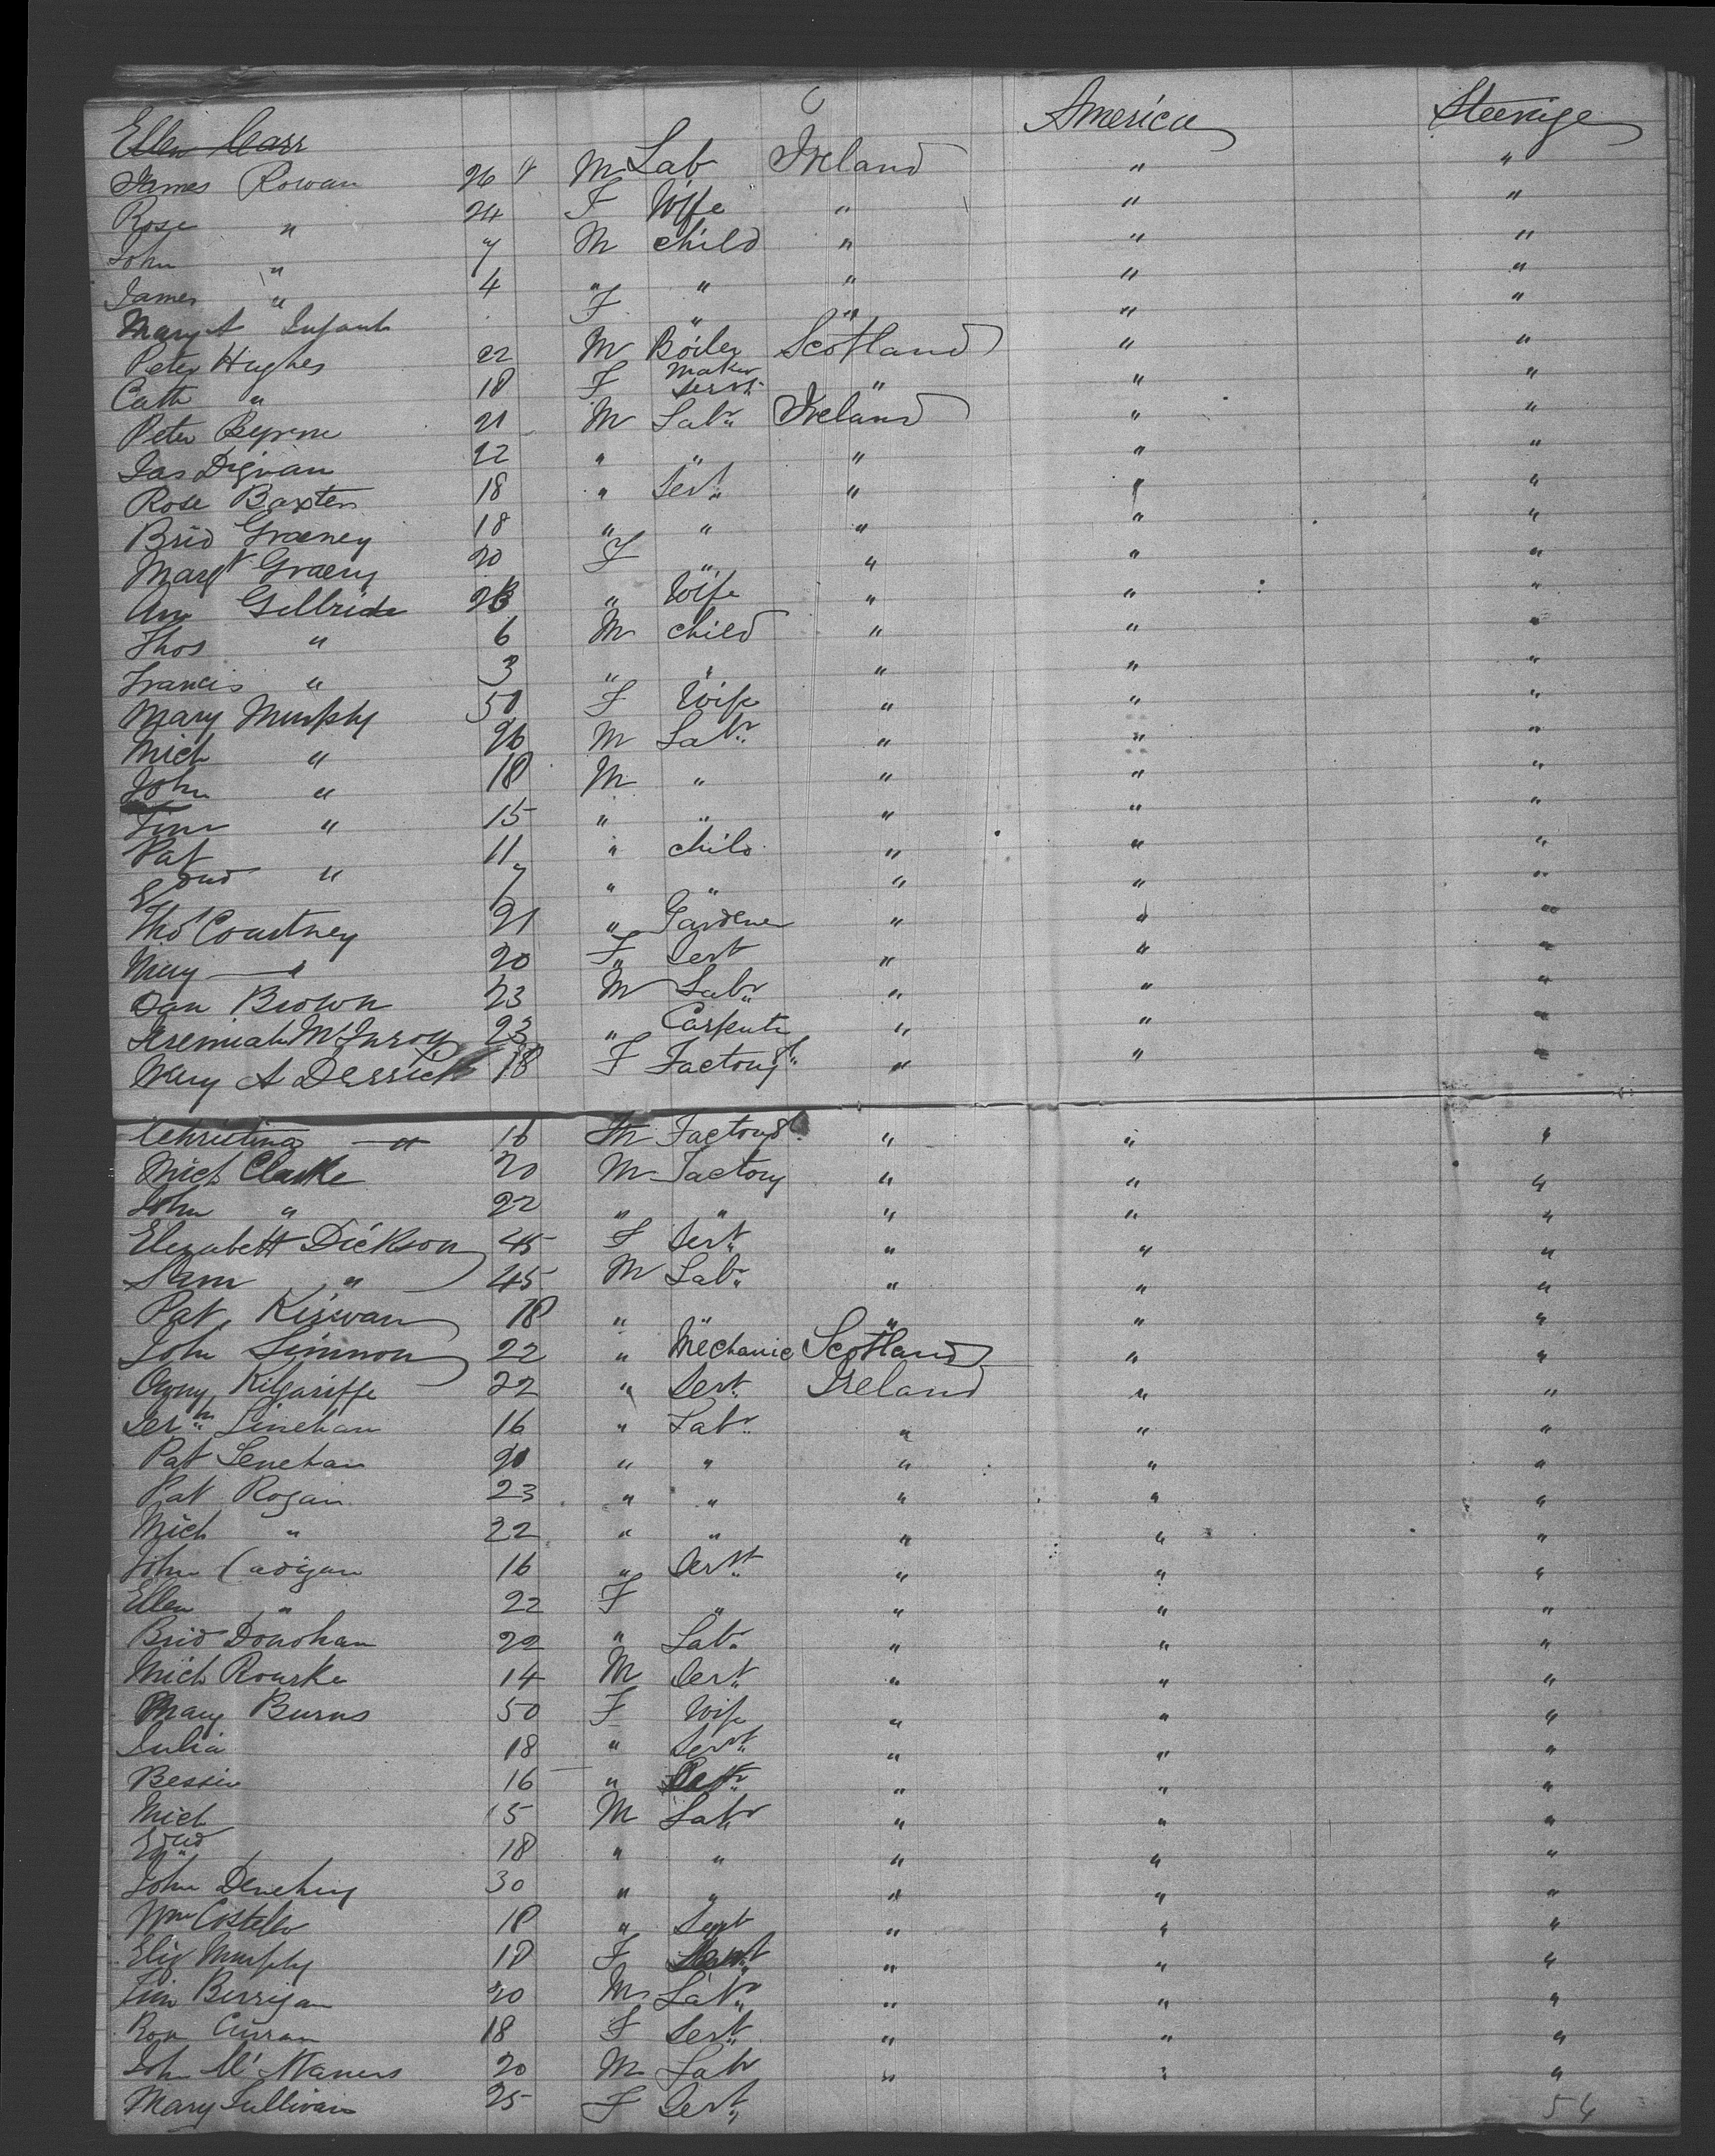 Ellen Carr America Steerage
James Rowan 26 M Lab Ireland " "
Rose " 24 F Wife " " "
John " 7 M child " " "
James " 4 " " " " "
Mary A Infant F " " " "
Peter Hughes 22 M Boiler Maker Scotland " "
Cath " 18 F Servt " " "
Peter Byrne 21 M Labr Ireland " "
Jas Dignan 22 " " " " "
Rose Baxter 18 " Sert " " "
Brid Graeney 18 " " " " "
Margt Graeny 20 F " " " "
Ann Gillbride 23 " Wife " " "
Thos " 6 M child " " "
Francis " 3 " " " " "
Mary Murphy 50 F Wife " " "
Mich " 26 M Labr " " "
John " 18 M " " " "
Tim " 15 " " " " "
Pat 11 " child " " "
Edmd " 7 " " " " "
Thos Courtney 21 " Gardener " " "
Mary " 20 F Sert " " "
Dan Brown 23 M Labr " " "
Jeremiah McInroy 23 " Carpentr " " "
Mary A Derrick 18 F Factory " " "
Christina " 16 M Factory " " "
Mich Clarke 20 M Factory " " "
John " 22 " " " " "
Elezabett Dickson 45 F Sert " " "
Sam " 45 M Labr " " "
Pat Kirwan 18 " " " " "
John Simmon 22 " Mechanic Scotland " "
Kilgariffe 22 " Sert Ireland " "
Jerh Linehan 16 " Labr " " "
Pat Lenehan 20 " " " " "
Pat Rogan 23 " " " " "
Mich " 22 " " " " "
John Cadigan 16 " Servt " " "
Ellen " 22 F " " " "
Brid Donohan 22 " Labr " " "
Mich Rourke 14 M Sert " " "
Mary Burns 50 F Wife " " "
Julia 18 " Servt " " "
Bessie 16 " " " "
Mich 15 M Labr " " "
Edmd 18 " " " " "
John Denehey 30 " " " " "
Wm Costello 18 " Sert " " "
Eliz Murphy 18 F Servt " " "
Tim Berrigan 20 M Labr " " "
Curran 18 F Sert " " "
John 20 M Labr " " "
Mary Sullivan 25 F Sert
54